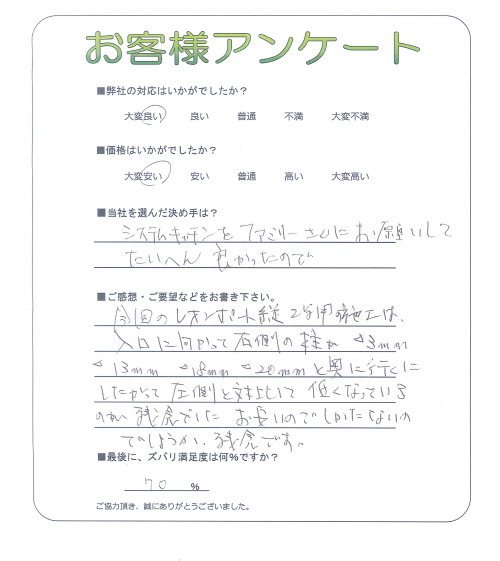 お客様アンケート
■弊社の対応はいかがでしたか？
大変良い 良い 普通 不満 大変不満
■価格はいかがでしたか？
大変安い 安い 普通 高い 大変高い
■当社を選んだ決め手は？
システムキッチンを ファミリーさんにお願いして
たいへん 良かったので
■ご感想・ご要望などをお書き下さい。
今回の カーポート 2台用の施工は、
入口に向かって右側の柱が 3mm
13mm 18mm 20mmと奥に行くに
したがって 左側と対比して 低くなっている
のが残念でした お安いのでしかたないの
でしょうか、残念です。
■最後に、ズバリ満足度は何％ですか？
70 ％
ご協力頂き、誠にありがとうございました。